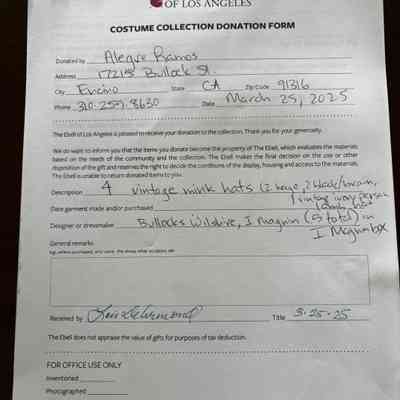 OF LOS ANGELES
COSTUME COLLECTION DONATION FORM
Donated by Alegre Ramos
Address 17215 Bullock St.
City Encino State CA Zip Code 91316
Phone 310-259-8630 Date March 25, 2025
The Ebell of Los Angeles is pleased to receive your donation to the collection. Thank you for your generosity.
We do want to inform you that the items you donate become the property of The Ebell, which evaluates the materials
based on the needs of the community and the collection. The Ebell makes the final decision on the use or other
disposition of the gift and reserves the right to decide the conditions of the display, housing and access to the materials.
The Ebell is unable to return donated items to you.
Description 4 vintage mink hats (2 beige, 2 black/brown,
1 vintage ivory persian
lamb hat
Date garment made and/or purchased
Designer or dressmaker Bullocks Wilshire, I Magnin (5 total) in
I Magnin box
General remarks
Received by Title 3-25-25
The Ebell does not appraise the value of gifts for purposes of tax deduction.
FOR OFFICE USE ONLY
Inventoried
Photographed